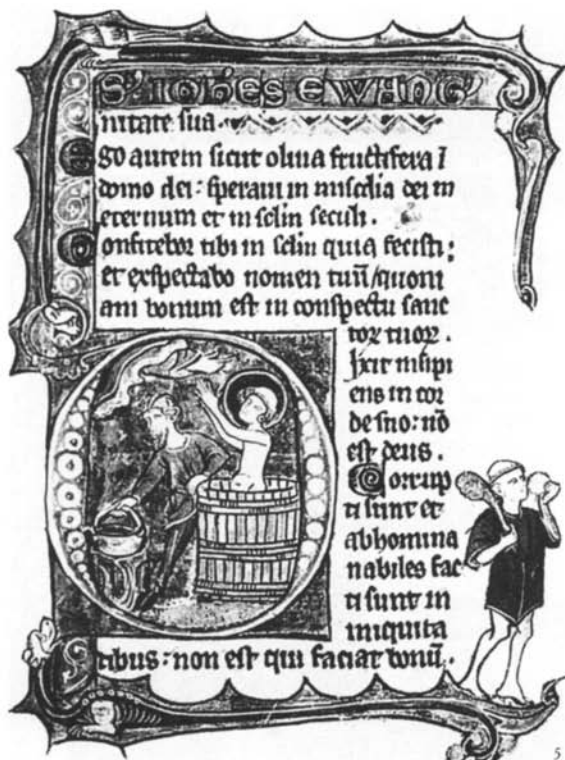 S' IOH'ES EWANG'
nitate sua.
Ego autem sicut oliua fructifera ī
domo dei: speraui in misc̄dia dei in
eternum et in sc̄lm seculi.
Confitebor tibi in sc̄lm quia fecisti:
et exspectabo nomen tuū/quoni
am bonum est in conspectu sanc
toꝝ tuoꝝ.
Dixit insipi
ens in cor
de suo: nō
est deus.
Corrup
ti sunt et
abhomina
nabiles fac
ti sunt in
iniquita
tibus: non est qui faciat bonū.
5